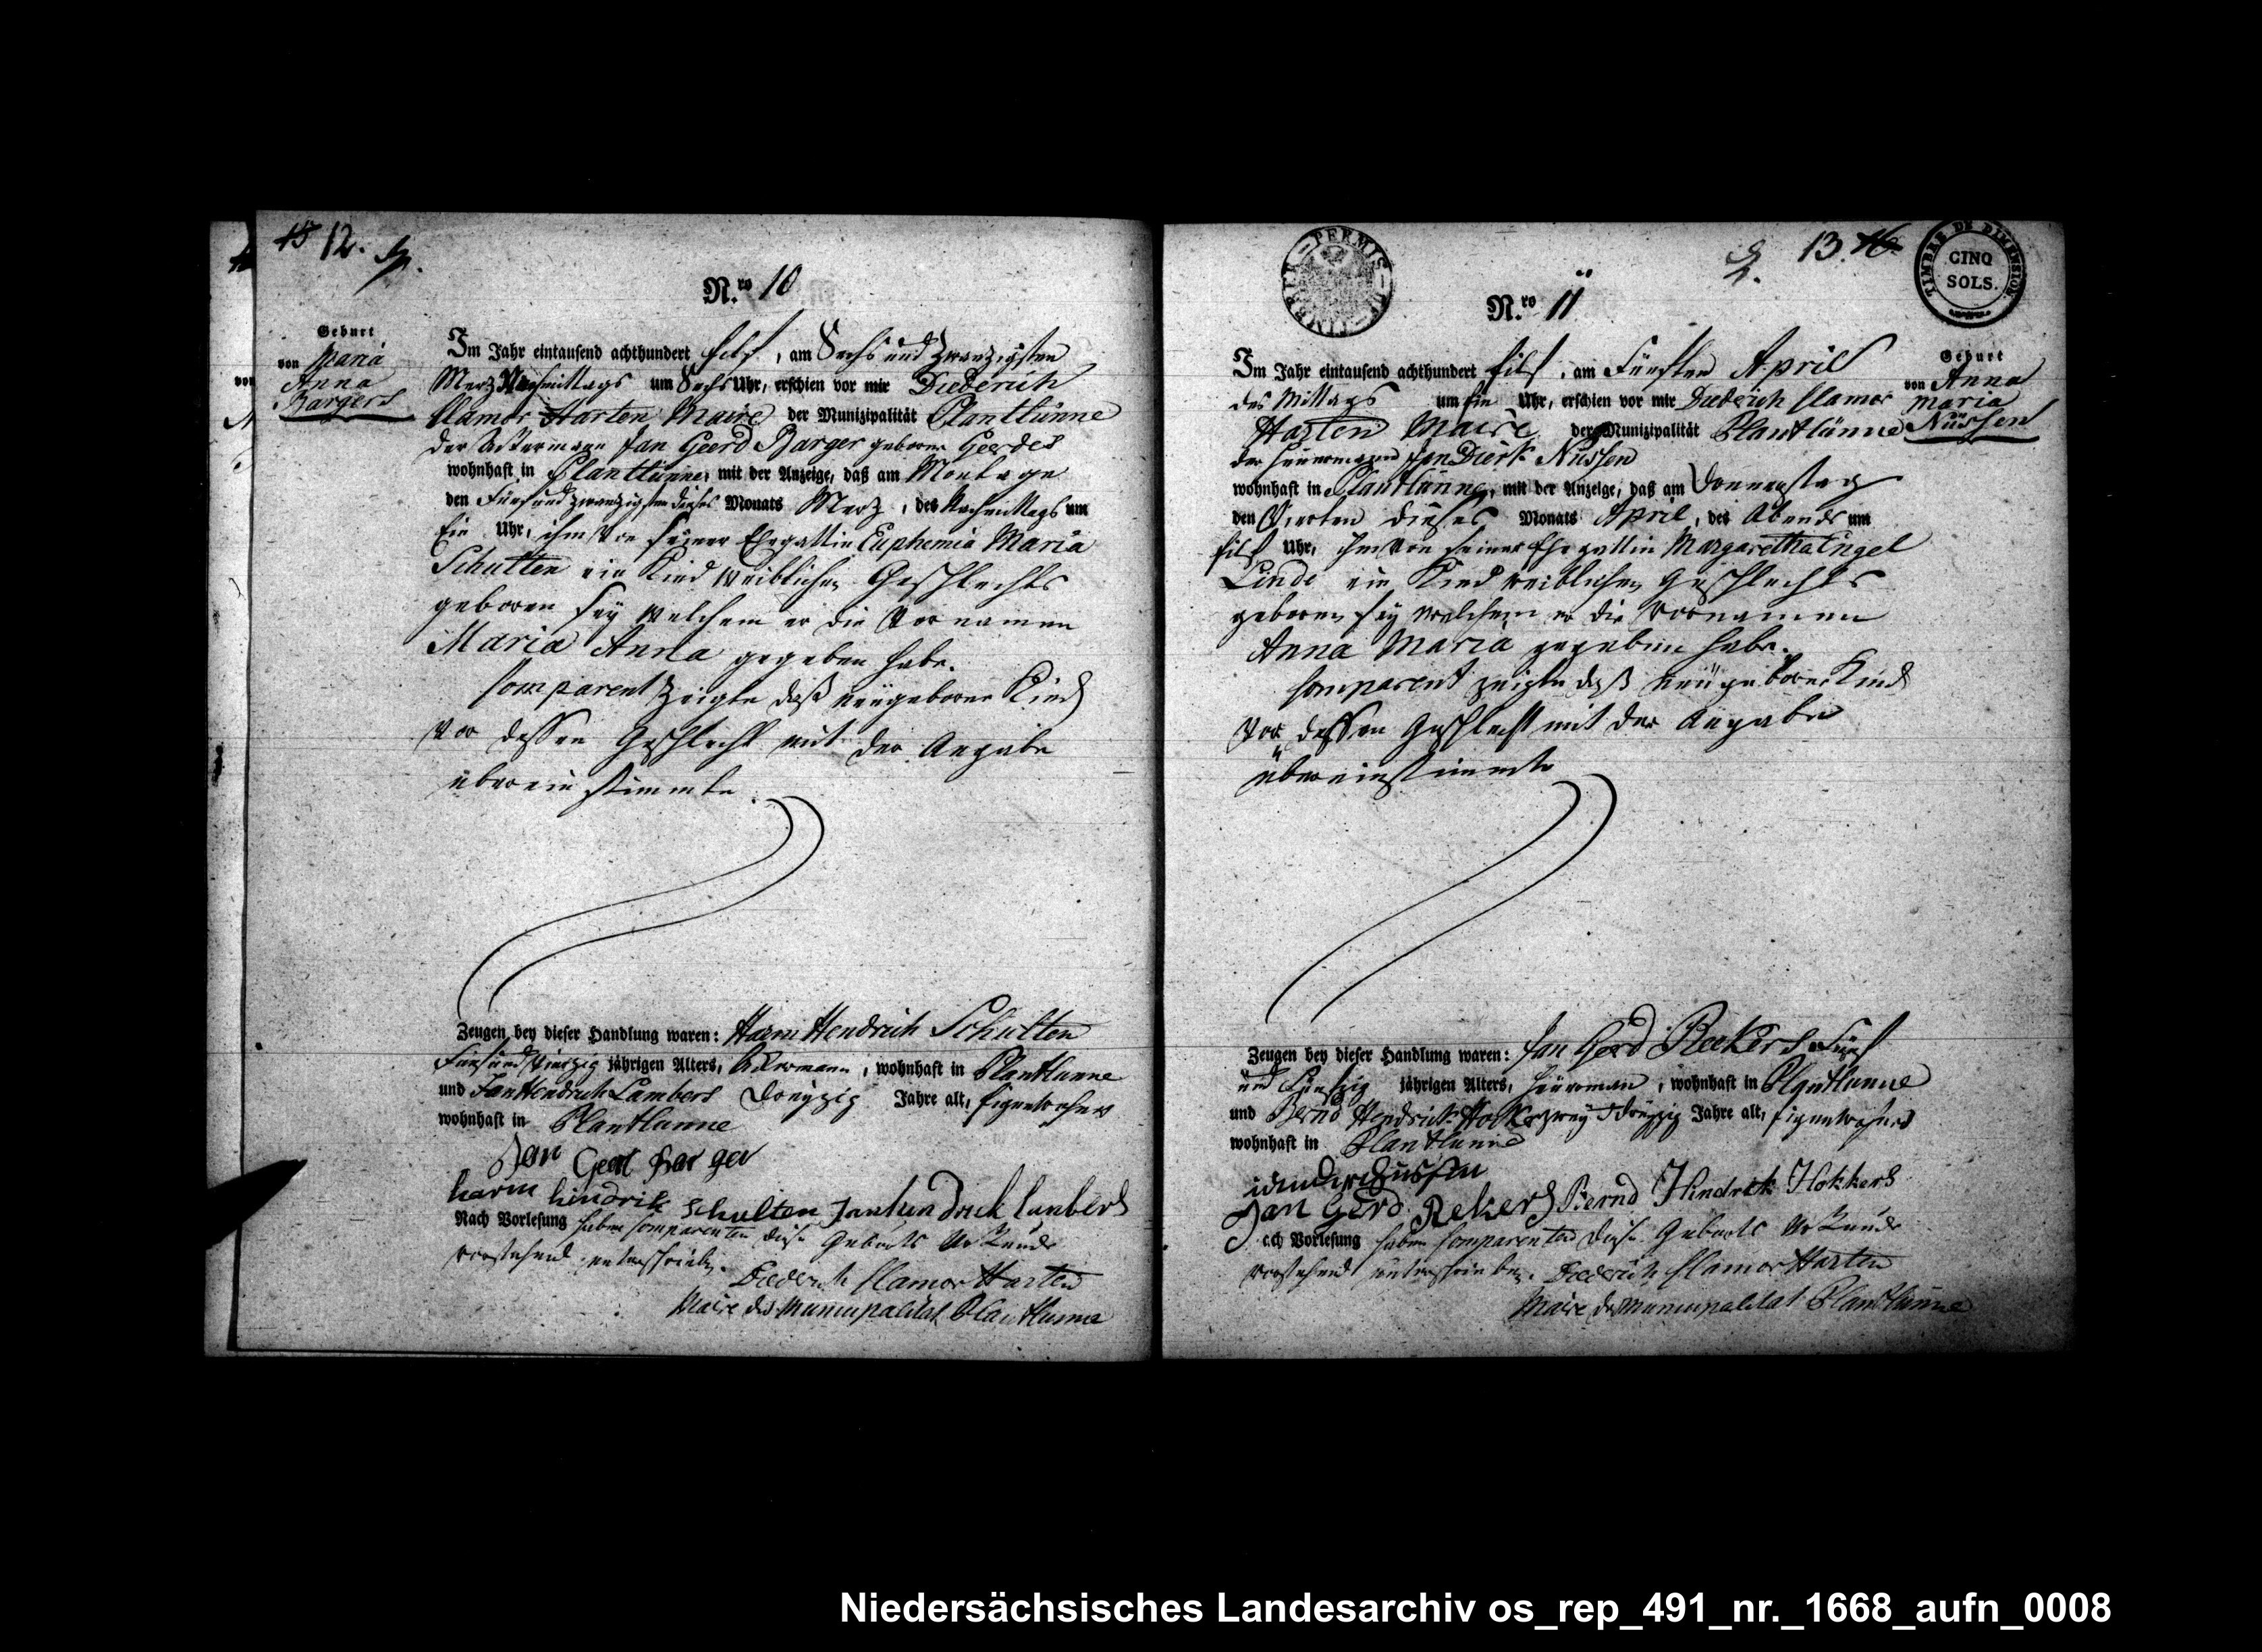 15 12.
N.ro 10
Geburt
von Maria
Anna
Bargers
Im Jahr eintausend achthundert Eilf, am Sechs und zwanzigsten
Merz Nachmittags um Sechs Uhr, erschien vor mir Diederich
Clamor Harten Maire der Munizipalität Plantlünne
der Ackermann Jan Geerd Barger geborner Geerdes
wohnhaft in Plantlünne, mit der Anzeige, daß am Montage
den Fünf und zwanzigsten dieses Monats Merz, des Nachmittags um
Ein Uhr, ihm von seiner Ehegattin Euphemia Maria
Schulten ein Kind Weiblichen Geschlechts
geboren sey welchem er die Vornamen
Maria Anna gegeben habe.
Comparent zeigte daß neugeborne Kind
vor dessen Geschlecht mit der Angabe
übereinstimmte
Zeugen bey dieser Handlung waren: Harm Hendrich Schulten
Fünf und Vierzig jährigen Alters, Ackermann, wohnhaft in Plantlunne
und Jan Hendrich Lambers Dreyzig Jahre alt, Eigenwohner
wohnhaft in Plantlunne
Jan Gerd Barger
harm hindrik schulten Jan hendrick lambers
Nach Vorlesung haben Comparenten diese Geburts Urkunde
vorstehend unterschrieben.
Diederich Clamor Harten
Maire der Municipalitat Plantlunne
PERMIS TIMBRE
13. 16
TIMBRE DE DIMENSION
CINQ
SOLS.
N.ro 11
Geburt
von Anna
Maria
Nüssen
Im Jahr eintausend achthundert Eilf, am Fünften April
des Mittags um Ein Uhr, erschien vor mir Diederich Clamor
Harten Maire der Munizipalität Plantlünne
der Heuermann Jan Dierk Nüssen
wohnhaft in Plantlünne, mit der Anzeige, daß am Donnerstag
den Vierten dieses Monats April, des Abends um
Eilf Uhr, ihm von seiner Ehegattin Margaretha Engel
Linde ein Kind weiblichen Geschlechts
geboren sey welchem er die Vornamen
Anna Maria gegeben habe.
Comparent zeigte daß neugeborne Kind
vor dessen Geschlecht mit der Angabe
übereinstimmte
Zeugen bey dieser Handlung waren: Jan Gerd Reekers Fünf
und Fünfzig jährigen Alters, Heuermann, wohnhaft in Plantlunne
und Bernd Hendrick Hokkers zwey und dreyzig Jahre alt, Eigenwohner
wohnhaft in Plantlunne
Jan Gerd Rekers Bernd Hindrick Hokkers
ach Vorlesung haben Comparenten diese Geburts Urkunde
vorstehend unterschrieben. Diederich Clamor Harten
Maire der Municipalitat Plantlünne
Niedersächsisches Landesarchiv os_rep_491_nr._1668_aufn_0008